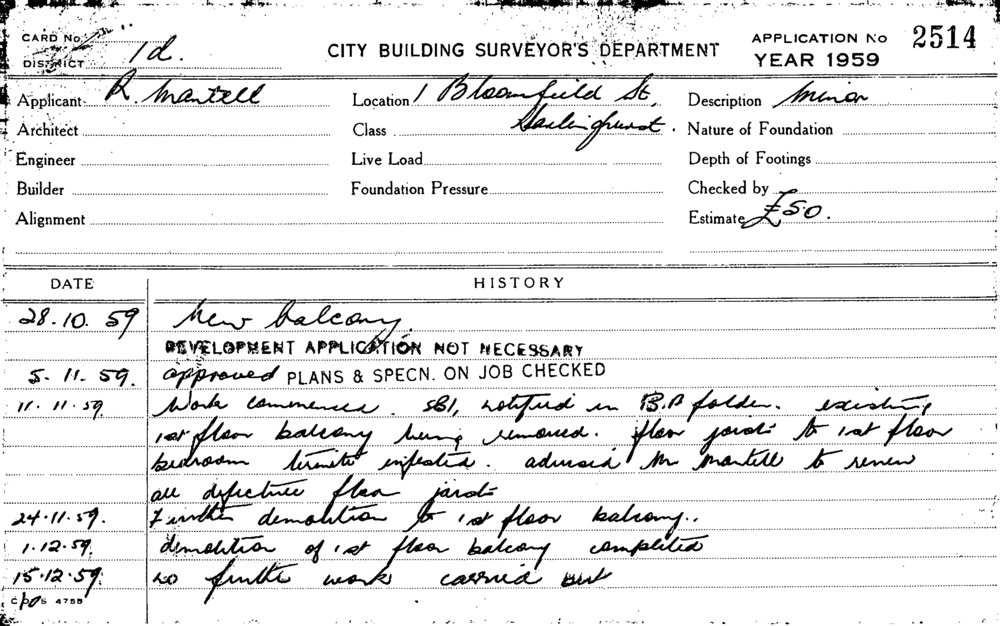 CARD No. 1d.
DISTRICT
CITY BUILDING SURVEYOR'S DEPARTMENT
APPLICATION No 2514
YEAR 1959
Applicant R. Mantell
Location 1 Bloomfield St,
Description Minor
Architect
Class Darlinghurst.
Nature of Foundation
Engineer
Live Load
Depth of Footings
Builder
Foundation Pressure
Checked by
Alignment
Estimate £50.
DATE
HISTORY
28.10.59 New balcony.
DEVELOPMENT APPLICATION NOT NECESSARY
5.11.59. approved PLANS & SPECN. ON JOB CHECKED
11.11.59 Work commenced. SB1, notified in B.A folder. existing
1st floor balcony being removed. floor joists to 1st floor
bedroom termite infested. advised Mr Mantell to renew
all defective floor joists
24.11.59. Further demolition to 1st floor balcony.
1.12.59. demolition of 1st floor balcony completed
15.12.59. no further work carried out
4755